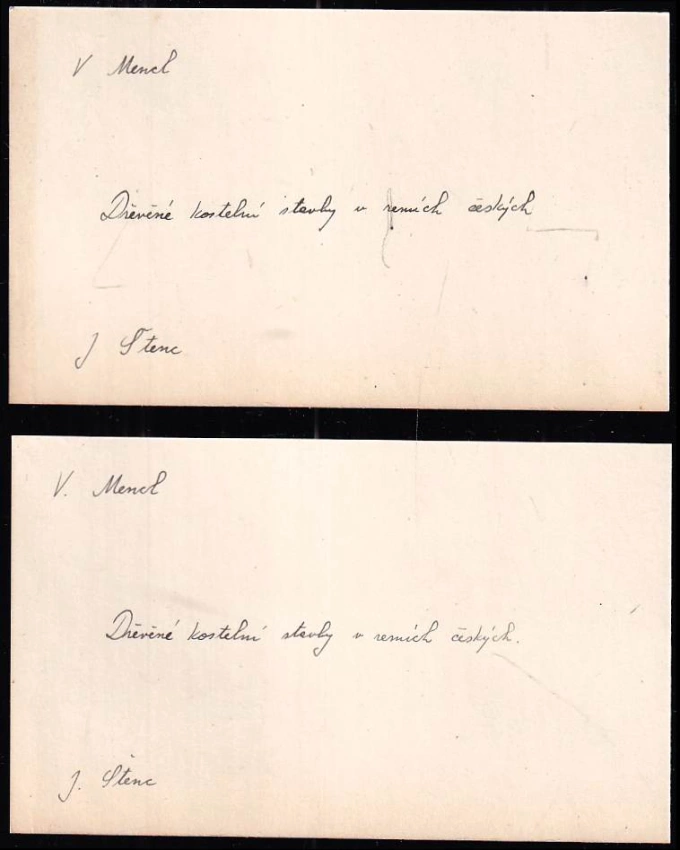 V Mencl
Dřěvěné kostelní stavby v zemích českých
J Štenc
V. Mencl
Dřěvěné kostelní stavby v zemích českých.
J. Štenc